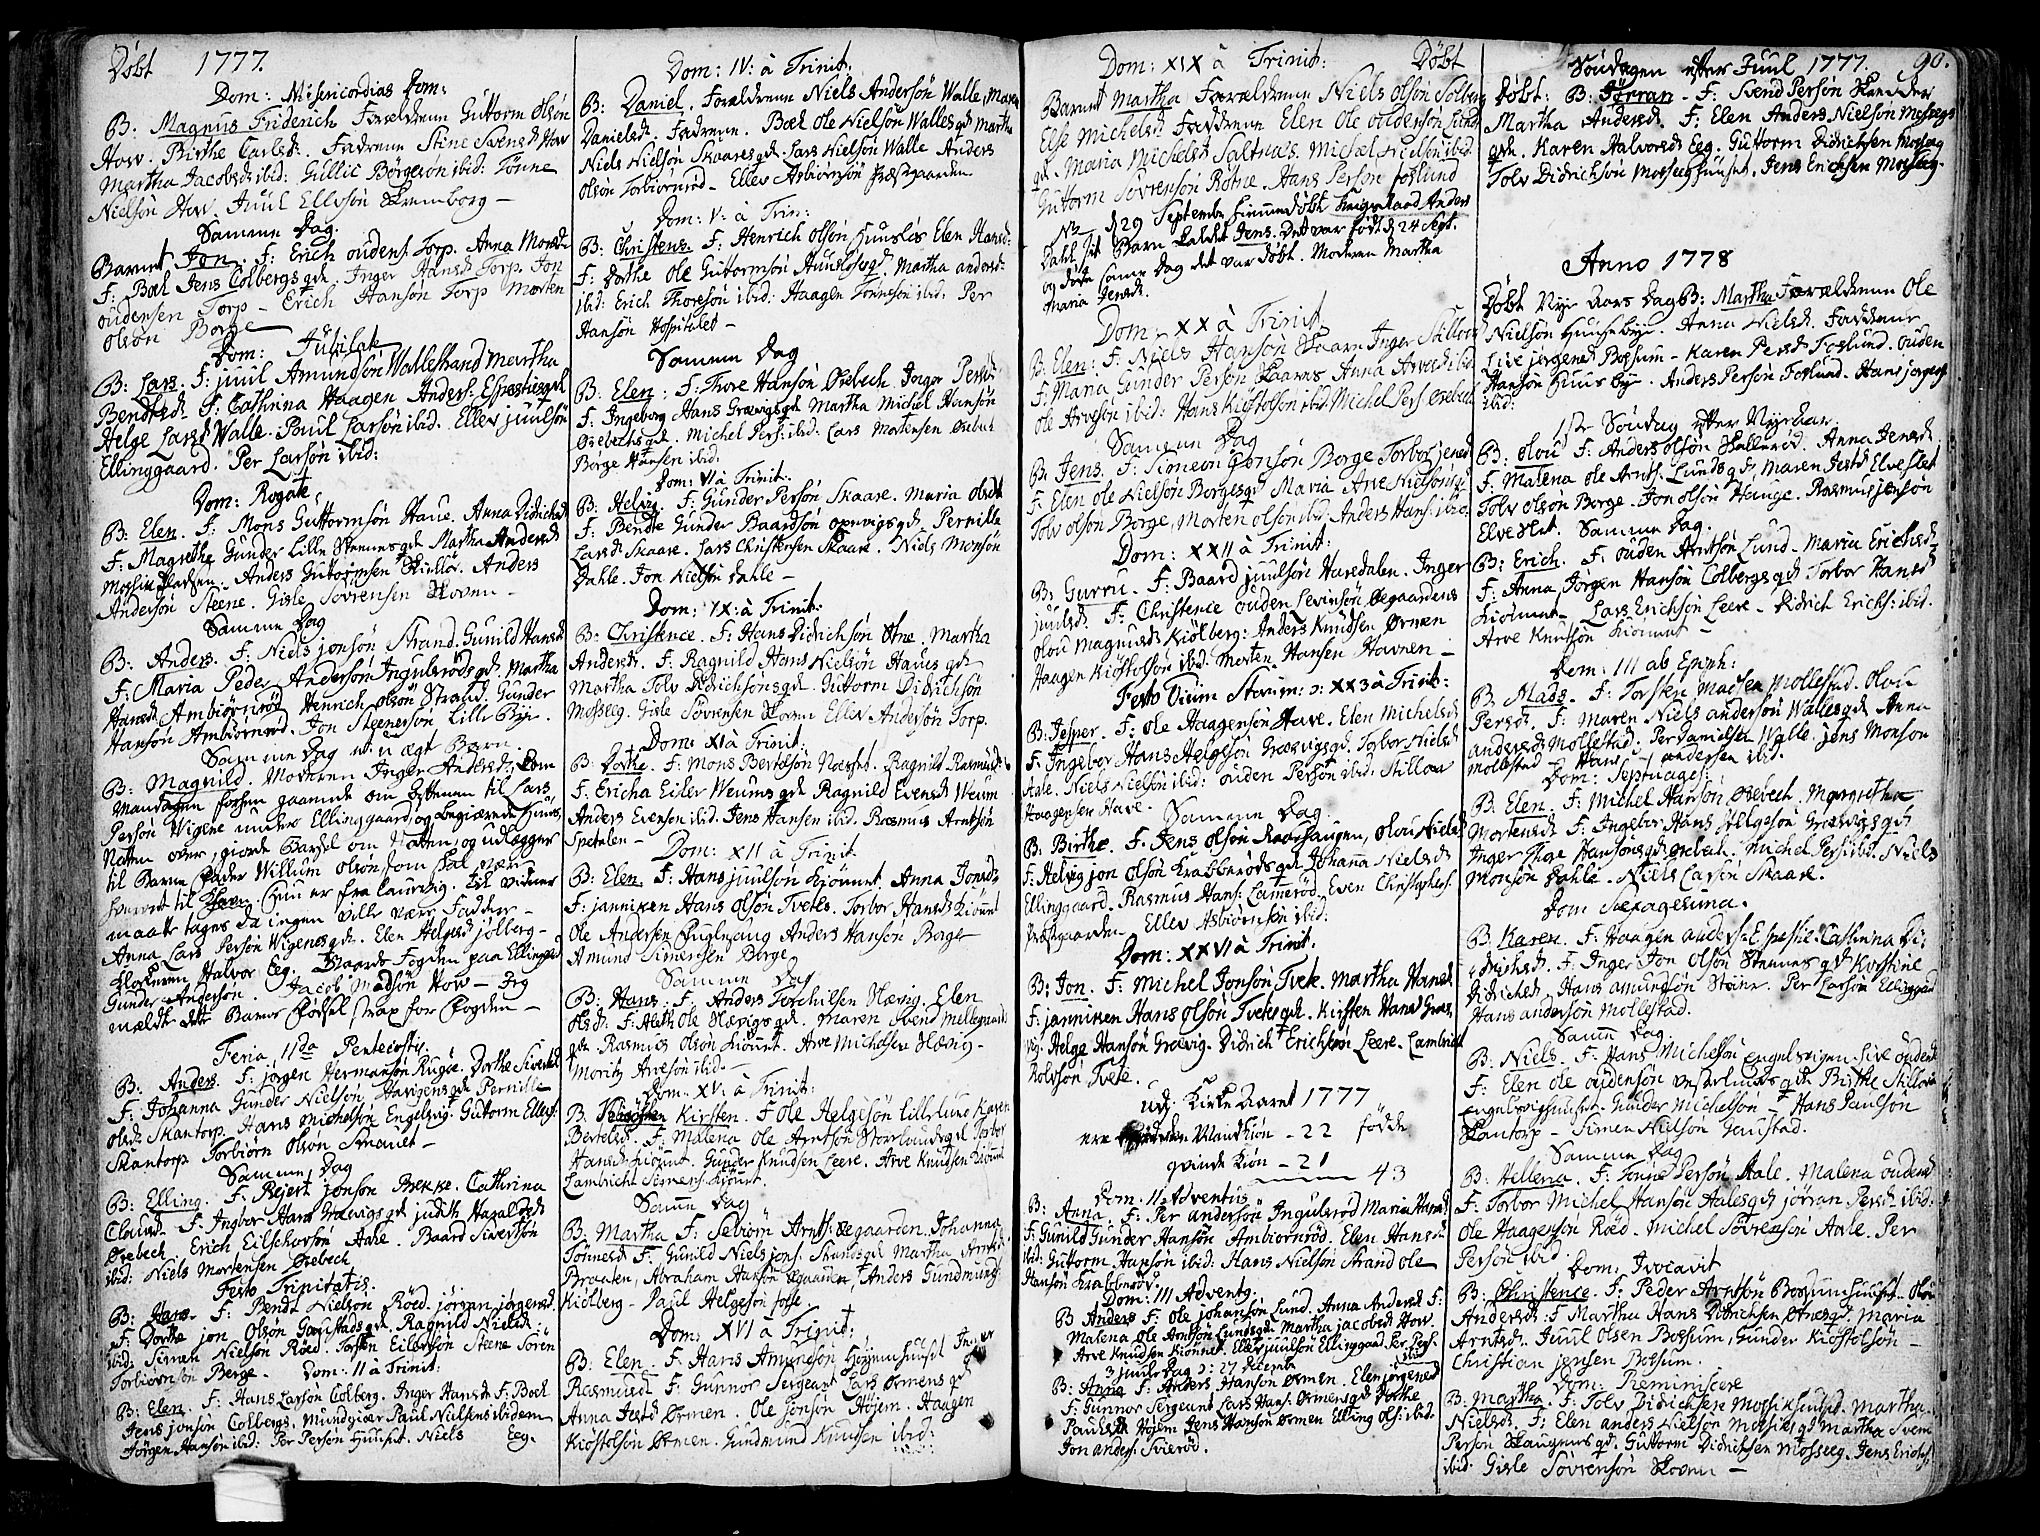 Døbt 1777.
Dom: Misericordias Dom:
B: Magnus Friderich Forældrene Guttorm Olsøn
How. Birthe Carlsd. Fadrene Stine Svensd How
Martha Jacobsd ibid: Gullic Børgesøn ibid: Tønne
Nielsøn How Juul Ellevsøn Kremborg –
Samme Dag.
Barnet Jon. F: Erich oudens. Torp. Anna Monsd
F. Boel Jens Colbergs qd. Inger Hansd Torp. Jon
oudensen Torp – Erich Hansøn Torp Morten
olsøn Borge
Dom: Jubilate
B: Lars. F: juul Amundsøn Wallestrand Martha
Bendtsd. F: Cathrina Haagen Anders: Espesties qd
Helge Larsd Walle. Poul Larsøn ibid. Ellev juulsøn
Ellinggaard. Per Larsøn ibid:
Dom: Rogate.
B: Elen. F: Mons Guttormsøn Haue. Anna Didrichsd
F: Magrethe Gunder Lille Skennes qd Martha Andersd
Mosseeg Pladsen. Anders Guttormsen Skislør. Anders
Andersøn Steene. Gisle Sørensen Skoven –
Samme Dag
B: Anders. F: Niels jonsøn Strand. Gunild Hansd
F: Maria Peder Andersøn Ingulsrøds qd. Martha
Hansd Ambiørnrød Henrich olsøn Strand. Gunder
Hansøn Ambiørnrød. Jon Steenersøn Lille Bye.
Samme Dag et u ægt Barn
B: Magnild. Moderen Inger Andersd: kom
Mandagen forhen gaaende om Aftenen til Lars
Persøn Wigene under Ellinggaard, og begierede Huus
Natten over, giorde Barsel om Natten, og udlægger
til Barne Fader Willum olsøn som skal være
henreist til Hun er fra laurvig. til vidner
maatte tages da ingen ville være Faddere –
Anna Lars Persøn Wigenes qd. Elen Helgesd jølberg –
Klokkeren Halvor Eeg. Baards Fogden paa Ellinggd
Gunder Andersøn. Jacob Madsøn How – Jeg
mældte dette Barns Fødsel strax for Fogden –
Feria IIda Pentecosty.
B: Anders. F: jørgen Hermansøn Rugøe. Dorthe Siversd
F: Johanna Gunder Nielsøn Havigens qd Pernille
olsd. Skantorp. Hans Michelsøn Engelsvig. Guttorm Ellefs.
Skantorp Torbiørn Olsøn Smauet –
Samme Dag
B: Elling. F: Rejert jonsøn Brekke. Cathrina
Clausd. F: Ingbor Hans Grævigs qd judith Haraldsd
Ørebech. Erich Eilschorsøn Aale. Baard Sivertsøn
ibid: Niels Mortensen Ørebech
Festo Trinitatis.
B: Hans. F: Bendt Nielson Røed. jørran jørgensd
F. Dorthe jon Olsøn Gaustads qd. Ragnild Nielsd:
ibid: Simen Nielsøn Røed. Torsten Eilersøn Steene Sørén
Torbiørnsøn Berge. Dom: II à Trinit:
B: Elen. F: Hans Larsøn Colberg. Inger Hansd F. Boel
Jens jonsøn Colbergs. Mundgiær Paul Nielsens ibidem
Jørgen Hansøn ibid: Per Persøn Huuset. Niels Eeg.
Dom: IV: à Trinit:
B: Daniel. Forældrene Niels Andersøn Walle, Maren
Danielsd. Fadrene. Boel Ole Nielsøn Walles qd Martha
Niels Nielsøn Skaares qd. Lars Nielsøn Walle Anders
Olsøn Torbiørnrød – Ellev Asbiørnsøn Præstgaarden
Dom: V: à Trin:
B: Christens. F: Henrich olsøn Huusløs Elen Hansd:
F: Dorthe Ole Guttormsøn Huusløs qd. Martha andersd:
ibid: Erich Thoresøn ibid: Haagen Tønnesøn ibid: Per
Hansøn Hospitalet –
Samme Dag
B: Elen: F: Thore Hansøn Ørebech Inger Persd
F. Ingeborg Hans Grævigs qd Martha Michel Hansøn
Ørebechs qd. Michel Pers: ibid: Lars Mortensen Ørebech
Børge Hansen ibid.
Dom: VI à Trinit:
B: Helvig. F: Gunder Persøn Skaare. Maria Olsd
F: Bendte Gunder Baardsøn openvigs qd – Pernille
Larsd Skaare. Lars Christensen Skaare. Niels Monsøn
Dahle. Jon Kielsøn Dahle –
Dom: IX: à Trinit:
B: Christence. F: Hans Didrichsøn Øtne. Martha
Andersd. F: Ragnild Hans Nielsøn Haues qd
Martha Tolv Didrichsøns qd. Guttorm Didrichsøn
Mosseeg. Gisle Sørensen Skoven Ellev Andersøn Torp.
Dom: XI à Trinit:
B: Dorthe. F: Mons Bertelsøn Næsset. Ragnild Rasmusd:
F: Ericha Eiler Weums qd Ragnild Evensd Weum
Anders Evensøn ibid. Jens Hansen ibid. Rasmus Arntsøn
Spetalen –
Dom: XII à Trinit.
B: Elen. F: Hans juulsøn Kiønnet. Anna Jonsd
F: janniken Hans Olsøn Tvetes. Torbor Hansd Kiønnet
Ole Andersen Fuglesang Anders Hansøn Borge
Amund Simensen Borge
Samme Dag
B: Hans. F: Anders Torchilsen Hævig. Elen
olsd. F: Aleth Ole Hævigs qd. Maren Svend Mellegaards
qd. Rasmus Olsøn Kiønnet. Arve Michelsen Hævig –
Moritz Arvesøn ibid. –
Dom: XV: à Trinit:
B Kirsten. F Ole Helgesøn Lillelund Karen
Bertelsd. F: Malena Ole Arntsøn Storlunds qd Torbor
Hansd Kiønnet. Gunder Knudsen Leere. Arve Knudsen Kiønnet
Lambricht Simensen Kiønnet.
Samme Dag
B: Martha F: Sebiørn Arnts: Øegaarden. Johanna
Tønnesd F: Gunild Niels jons: Strands qd Martha Arntsd
Braaten, Abraham Hansøn Øgaarden, Anders Gundmunds:
Kiølberg – Paul Helgesøn Foss.
Dom: XVI à Trinit:
B: Elen. F: Hans Amundsøn Høyemshuuset Inger
Rasmusd F: Gunnor Sergeant Lars Ørmens qd
Anna Jestd Ørmen. Ole jonsøn Højem. Haagen
Kiøstolsøn Ørmen. Gundmund Knudsen ibid:
Dom: XIX à Trinit: Døbt
Barnet Martha Forældrene Niels Olsøn Solberg
Else Michelsd Faddrene Elen Ole oudensøn Lund
qd. Maria Michelsd Saltnæs. Michel Nielsøn ibid.
Guttorm Sørrensøn Rotne. Hans Persøn Foslund
NB d 29 Septembr hiemmedøbt Anders
Dahl sit Barn kaldet Jens. Det var født d 24 Sept.
og døde samme Dag det var døbt. Moderen Martha
Maria Jensd.
Dom: XX à Trinit
B: Elen: F: Niels Hansøn Skaare Inger Stillovsd
F: Maria Gunder Persøn Skaares Anna Arvesd ibid
Ole Arvesøn ibid: Hans Kiøstolsøn ibid: Michel Pers Ørebech
Samme Dag
B: Jens. F: Simeon Jonsøn Borge Torbor jensd
F: Elen Ole Nielsøn Borges qd Maria Arve Nielsøns qd
Tolv Olsøn Borge, Morten olsøn ibid: Anders Hans: ibid.
Dom: XXII à Trinit:
B: Gurru. F: Baard juulsøn Haredalen. Inger
juulsd. F: Christence Ouden Levinsøn Øegaardens
olou Magnusd Kiølberg: Anders Knudsen Ørmen
Haagen Kiøstolsøn ibid. Morten Hansen Havnen –
Festo Omium Storum: ɔ: XX3 à Trinit:
B: Jesper. F: Ole Haagensøn Have. Elen Michelsd
F: Ingebor Hans Helgesøn Grævigs qd. Torbor Nielsd
Aale. Niels Nielsøn ibid: ouden Persøn ibid: Stillow
Haagensen Have.
Samme Dag.
B: Birthe. F: Jens olsøn Roashaugen, Olou Nielsd
F: Helvig jon Olsøn Krabberøds qd Johanna Nielsd
Ellinggaard. Rasmus Hans: Lamerød. Even Christophers:
Præstgaarden – Ellev Asbiørnsøn ibid:
Dom: XXVI à Trinit.
B: Jon. F: Michel Jonsøn Tvete. Martha Hansd
F: janniken Hans olsøn Tvetes qd. Kirsten Hansd Græ-
vig. Helge Hansøn Grævig. Didrich Erichsøn Leere. Lambricht
Rolvsøn Tvete.
udj Kirke Aaret 1777
ere Mandkiøn – 22 fødde
qvinde kiøn – 21
43
Dom: II Adventus
B: Anna. F: Per andersøn Ingulsrød Maria Hansd
F: Gunild Gunder Hansøn Ambiørnrød. Elen Hansd
ibid: Guttorm Hansøn ibid: Hans Nielsøn Strand Ole
Hansøn Krabberød.
Dom: III Advents.
B: Anders F: Ole johansøn Lund. Anna Andersd F:
Malena Ole Arntsøn Lunds qd. Martha jacobsd How.
Arve Knudsen Kiønnet. Ellev juulsøn Ellinggaard Per Pers:
3 juule Dag ɔ: 27 Decembr ibid
B: Anna F: Anders Hansøn Ørmen. Elen jørgensd
F: Gunnor Sergeant Lars Hans: Ørmens qd Dorthe
Paulsd Høiem Jens Hansøn Ørmen Elling Ols: ibid.
Jon anders: Svierød.
Søndagen efter Juul 1777. 90.
Døbt: B: Jørran – F: Svend Persøn Skredder
Martha Andersd. F: Elen Anders Nielsøn Mossegs
qd. Karen Halvorsd Eeg. Guttorm Didrichsen Mosseg
Tolv Didrichsøn Mosseeghuuset. Jens Erichsen Mosseg.
Anno 1778
Døbt Nyt Aars Dag B: Martha Forældrene Ole
Nielsøn Huusebye. Anna Nielsd. Faddrene
Lixe jørgensd Bossum – Karen Persd Foslund. ouden
Hansøn Huusebye. Anders Persøn Foslund. Hans jørgens
ibid:
1ste Søndag efter Nytaar.
B: Olou F: Anders olsøn Kallerød. Anna Jensd.
F. Malena Ole Arnts: Lunds qd, Maren Jestd Elveslet
Tolv olsøn Borge. Jon olsøn Hauge. Rasmus jensøn
Elveslet. Samme Dag.
B: Erich. F: ouden Arntsøn Lund. Maria Erichsd.
F: Anna Jørgen Hansøn Colbergs qd Torbor Hansd
Kiønnet – Lars Erichsøn Leere – Didrich Erichs: ibid.
Arve Knutsøn Kiønnet –
Dom: III ab Epiph:
B: Mads. F: Torsten Madsen Mollestad. Olou
Persd. F: Maren Niels andersøn Walles qd Anna
andersd Mollestad: Per Danielsen Walle. jens Monsøn
Mollestad – Hans andersen ibid.
Dom: Septuages:
B. Elen. F: Michel Hansøn Ørebech. Margretha
Mortensd F: Ingebor Hans Helgesøn Grævigs qd
Inger Thore Hansøns qd Ørebech. Michel Pers: ibid. Niels
Monsøn Dahle. Niels Larsen Skaare.
Dom Sexagesima.
B. Karen. F: Haagen anders: Espestie. Cathrina Di-
drichsd. F: Inger Jon olsøn Stennes qd Kirstine
Didrichsd, Hans amundsøn Steine. Per Larsøn Ellinggd
Hans andersøn Mollestad.
Samme Dag.
B: Niels. F: Hans Michelsøn Engelsvigen. Sive oudensd
F: Elen Ole oudensøn Vesterlunds qd Birthe Stillovsd
Engelsvighuuset. Gunder Michelsøn – Hans Paulsøn
Skantorp – Simen Nielsøn Gaustad.
Samme Dag
B: Hellena. F: Tønne Persøn Aale. Malena oudensd
F: Torbor Michel Hansøn Aales qd jørran Persd ibid:
Ole Haagensøn Røed. Michel Sørensøn Aale. Per
Persøn ibid.
Dom: Invocavit
B: Christence. F: Peder Arntsøn Bossumhuuset. Olou
Andersd: F Martha Hans Didrichsen Øtnes qd. Maria
Arntsd. Juul olsen Bossum, Gunder Kiøstolsøn –
Christian jensen Bossum.
Dom: Reminiscere
B: Martha. F: Tolv Didrichsen Mosseghuuset. Martha
Nielsd. F: Elen anders Nielsøn Mosseegs qd Martha Svend
Persøn Skaugnes qd. Guttorm Didrichsen Mosseeg. Jens Erichs:
ibid: Gisle Sørrensøn Skoven –